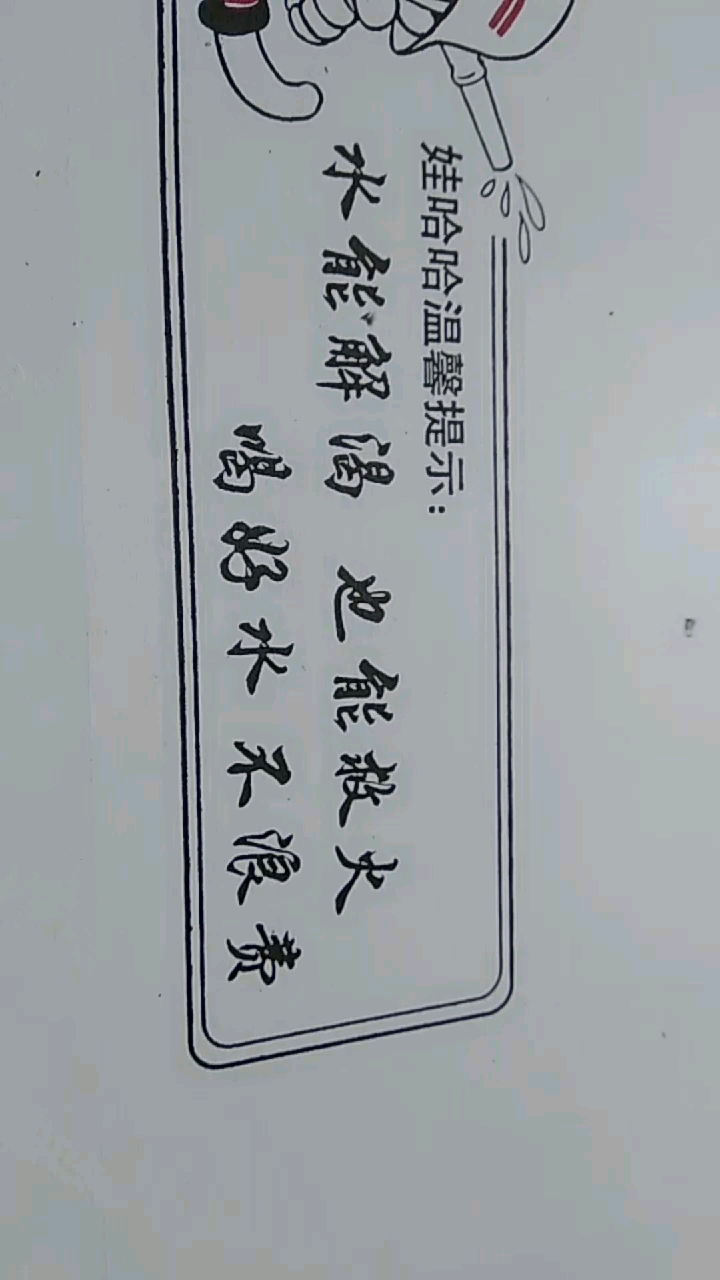 娃哈哈温馨提示：
水能解渴 也能救火
喝好水不浪费